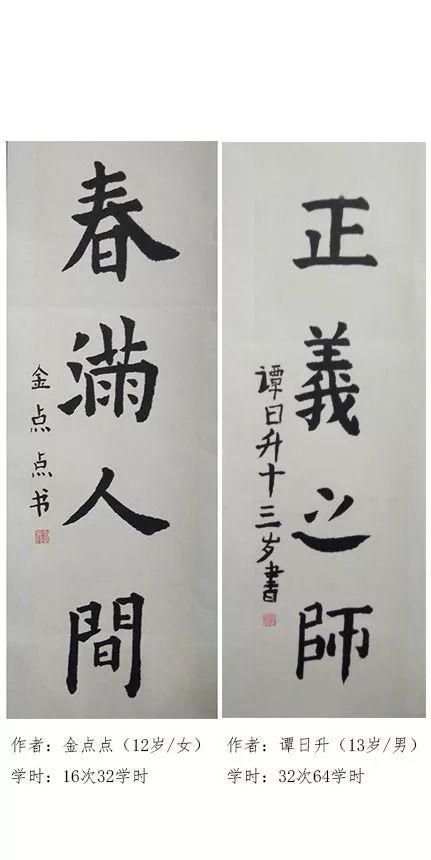 春滿人間
金点点书
正義之師
谭日升十三岁書
作者：金点点（12岁/女）
学时：16次32学时
作者：谭日升（13岁/男）
学时：32次64学时